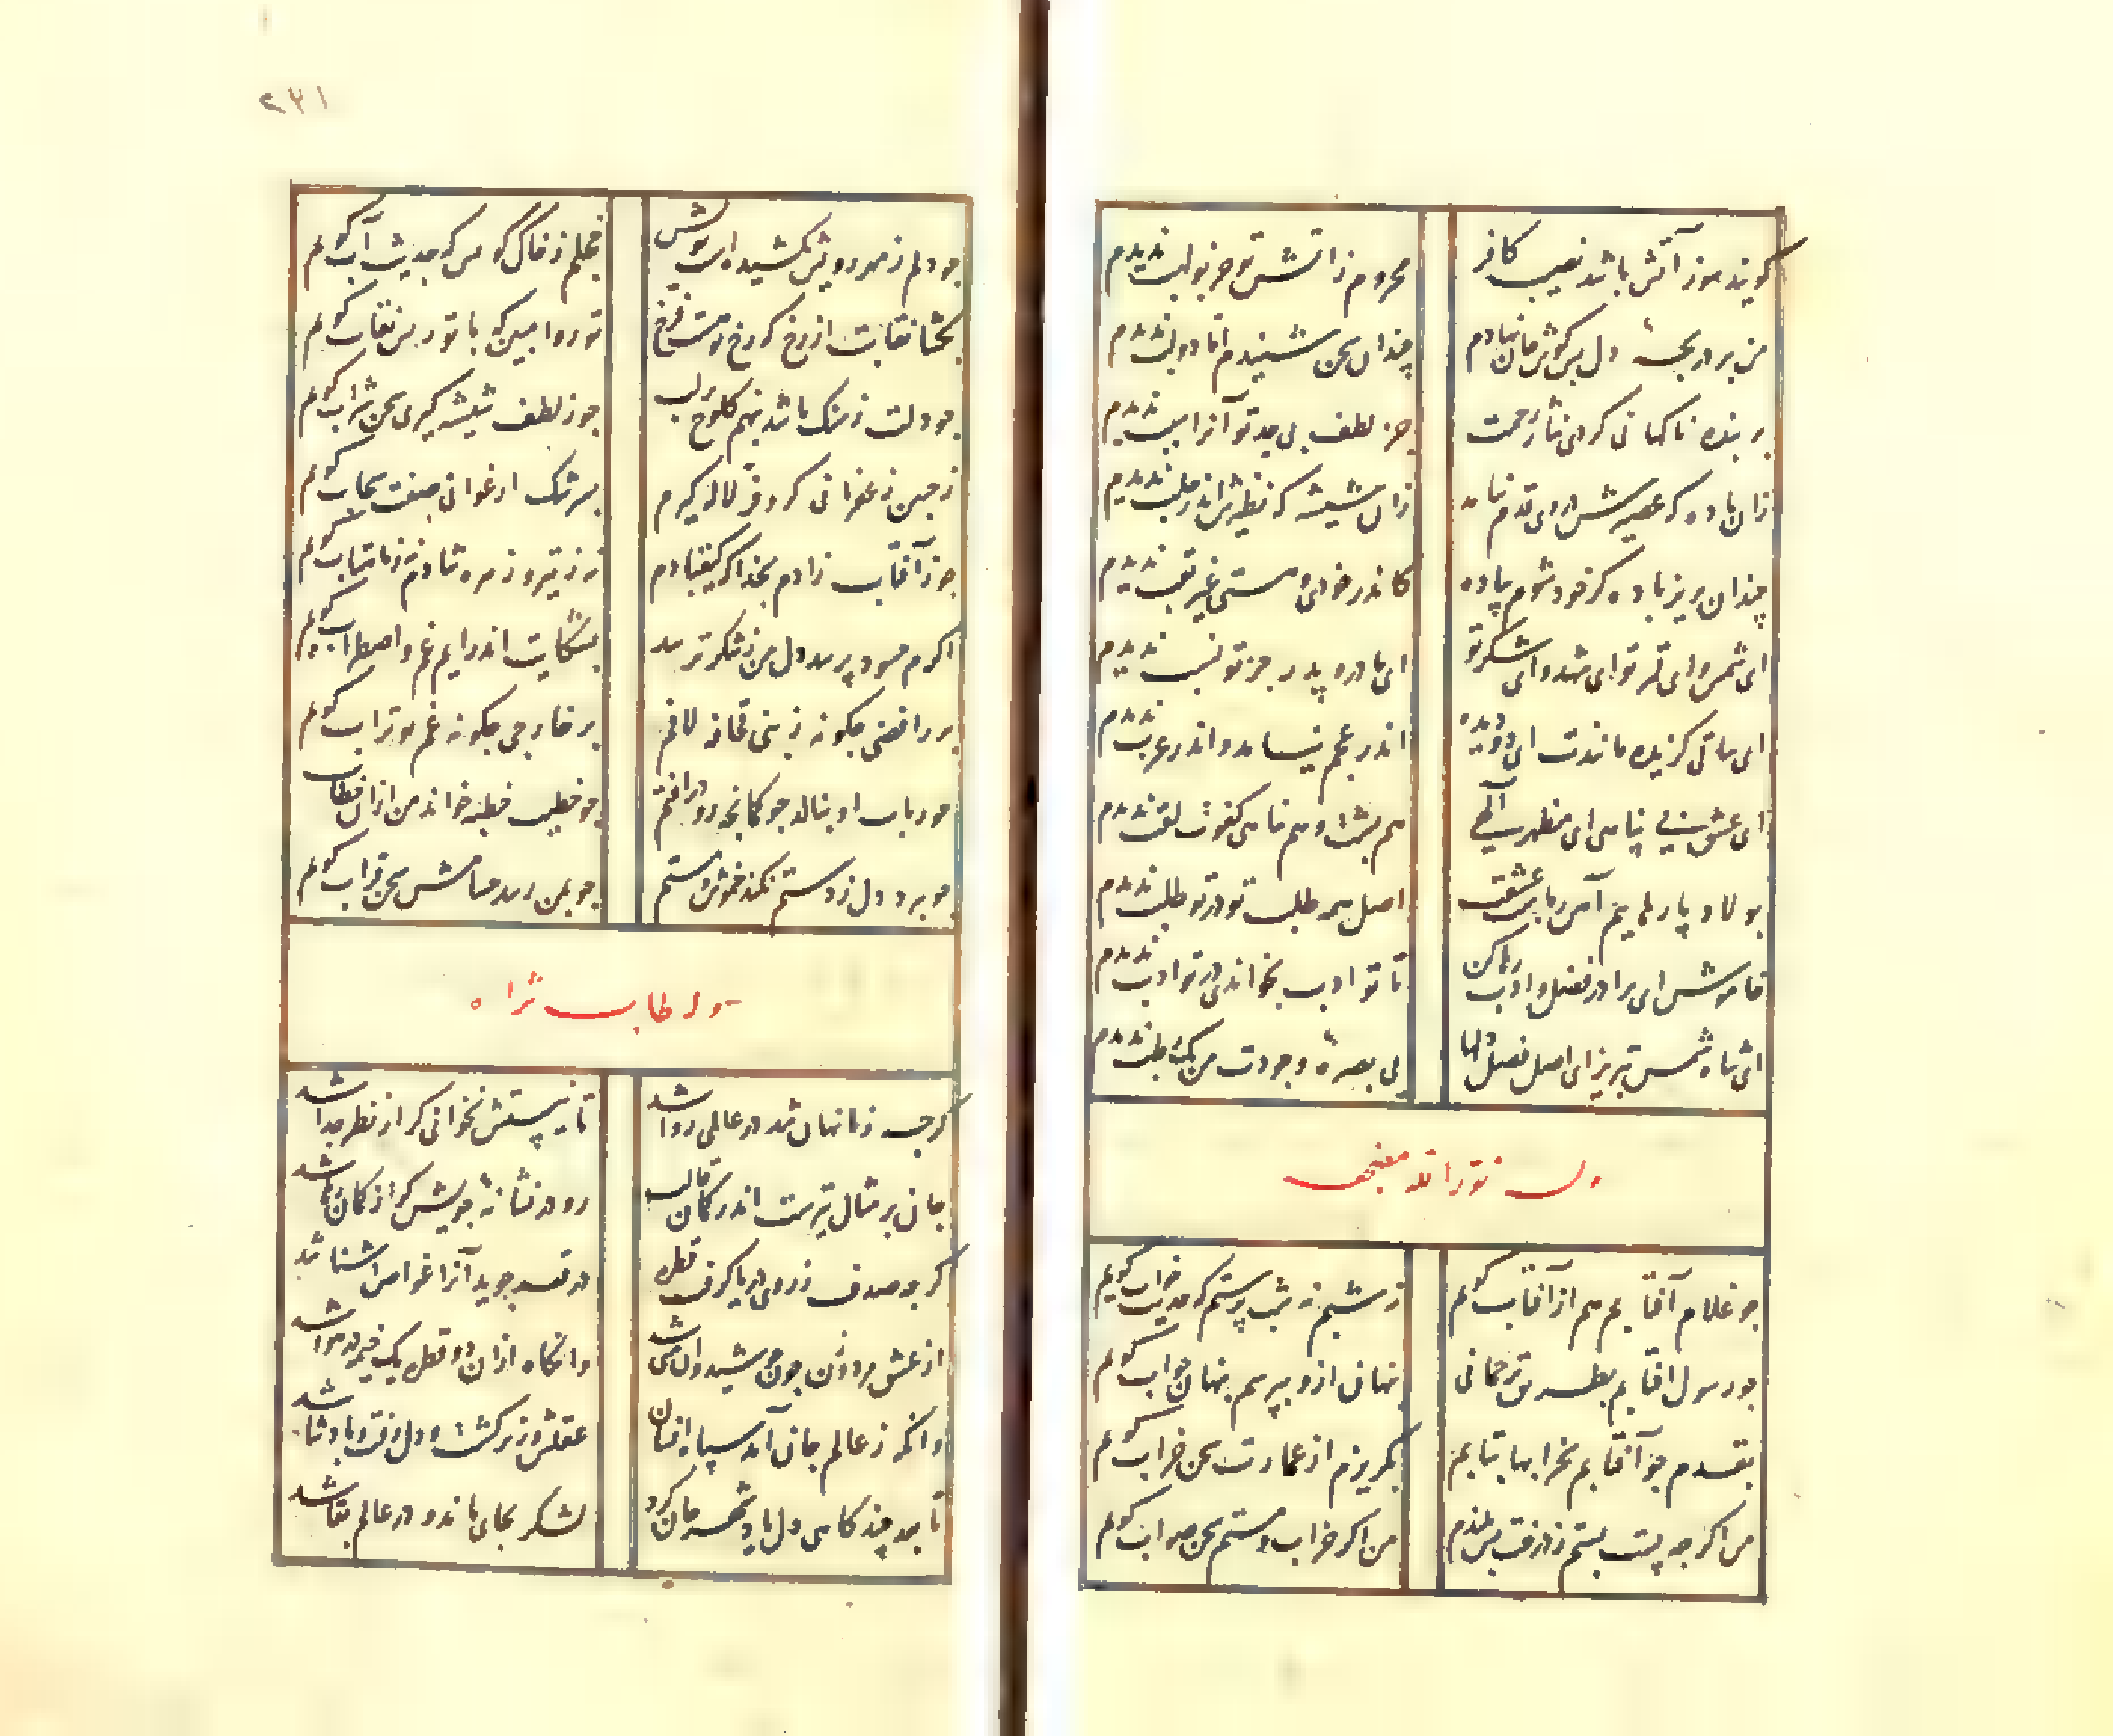 گویند سوز آتش باشد نصیب کافر محروم ز آتش تو جز بولهب ندیدم
من بر دریچهٔ دل بس گوش جان نهادم چندان سخن شنیدم اما دو لب ندیدم
بر بنده ناگهانی کردی نثار رحمت جز لطف بی حد تو آنرا سبب ندیدم
زان باده که عصیرش درون قدم نیامد زان شیشه که نظیرش اندر حلب ندیدم
چندان بریز باده کز خود شوم پیاده کاندر خودی و مستی غیر تعب ندیدم
ای شمس و ای قمر تو ای شهد و ای شکر تو ای مادر و پدر جز تو نسب ندیدم
ای ساقی گزیده مانندت ای دو دیده اندر عجم نیامد و اندر عرب ندیدم
ای عشق بی تناهی ای مظهر الهی هم پشت و هم پناهی کفوت لقب ندیدم
پولاد پارهاییم آهن رباست عشقت اصل همه طلب تو در تو طلب ندیدم
خاموش ای برادر فضل و ادب رها کن تا تو ادب بخواندی در تو ادب ندیدم
ای شاه شمس تبریز ای اصل اصل جانها بی بصرهٔ وجودت من یک رطب ندیدم
وله نور الله مضجعه
چو غلام آفتابم هم از آفتاب گویم نه شبم نه شب پرستم که حدیث خواب گویم
چو رسول آفتابم بطریق ترجمانی پنهان ازو بپرسم پنهان جواب گویم
بقدم چو آفتابم بخرابها بتابم بگریزم از عمارت سخن خراب گویم
من اگرچه پست پستم ز درخت بس بلندم من اگر خراب و مستم سخن صواب گویم
۲۳۱
چو دلم ز خاک کویش کشیده است بویش خجلم ز خاک کویش که حدیث آب گویم
بگشا نقابت از رخ که رخ تو است فرخ تو روا مبین که با تو ز پس نقاب گویم
چو دلت ز سنگ باشد بنهم کلوخ بر لب چو ز لطف شیشه گیری سخن شراب گویم
ز جبین زعفرانی کر و فر لاله گیرم بسرشک ارغوانی صفت سحاب گویم
چو ز آفتاب زادم بخدا که کیقبادم نه ز تیره زهره شادم نه ز ماهتاب گویم
اگرم حسود پرسد دل من ز شکر ترسد بشکایت اندر آیم غم و اضطراب گویم
بر رافضی چگونه ز بنی قحافه لافم بر خارجی چگونه غم بوتراب گویم
چو رباب او بنالد چو کمانچه رو درافتم چو خطیب خطبه خواند من ازان خطاب گویم
چو برد دل ز دستم نکند خموش مستم چو بمن رسد حسامش سخن قراب گویم
وله طاب ثراه
گرچه ز ما نهان شد در عالمی روا شد تا نیستش نخوانی گر از نظر جدا شد
جان بر مثال تیرست اندر کمان قالب رو در نشانه جویش گر از کمان رها شد
گر چه صدف ز روی دریا گرفت قطره در قعر جوید آنرا غواص آشنا شد
از عشق مرد و زن چون جوشید و آن منی شد وانگاه ازان دو قطره یک خیمه در هوا شد
وانگه ز عالم جان آمد سپاه انسان عقلش وزیر گشت و دل رفت و پادشا شد
تا بعد چند گاهی دل یاد شهر جان کرد لشکر بجای ماند و در عالم بقا شد